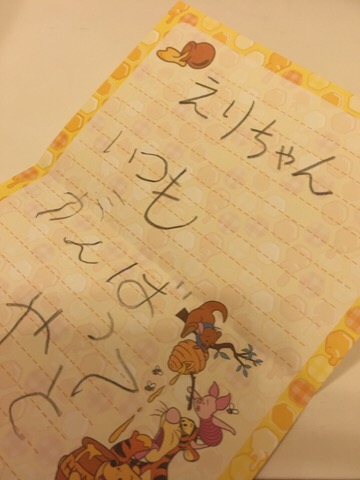 えりちゃん
いつも
がんば
って